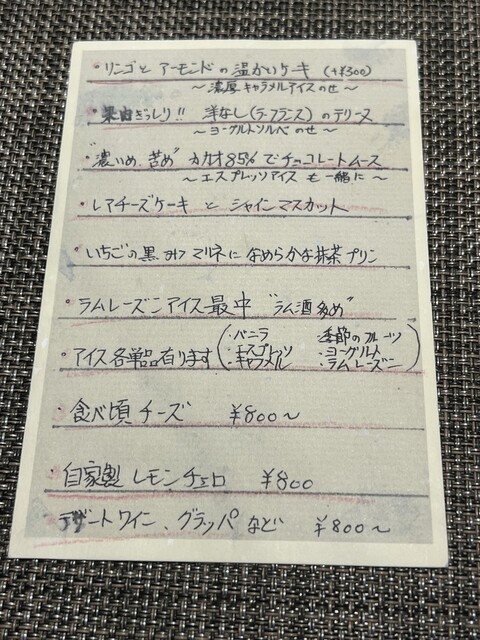 ・リンゴと アーモンドの温かいケーキ (+¥300)
〜濃厚キャラメルアイスのせ〜
・果肉ぎっしり!! 洋なし(ラ・フランス)のテリーヌ
〜ヨーグルトソルベのせ〜
・"濃いめ、苦め" カカオ85%で チョコレートムース
〜エスプレッソアイスも一緒に〜
・レアチーズケーキと シャインマスカット
・いちごの黒 マリネに なめらかな抹茶プリン
・ラムレーズンアイス最中 "ラム酒多め"
・アイス各単品有ります (・バニラ 季節のフルーツ
・エスプレッソ ・ヨーグルト
・キャラメル ・ラムレーズン)
・食べ頃チーズ ¥800〜
・自家製レモンチェロ ¥800
・デザートワイン、グラッパなど ¥800〜